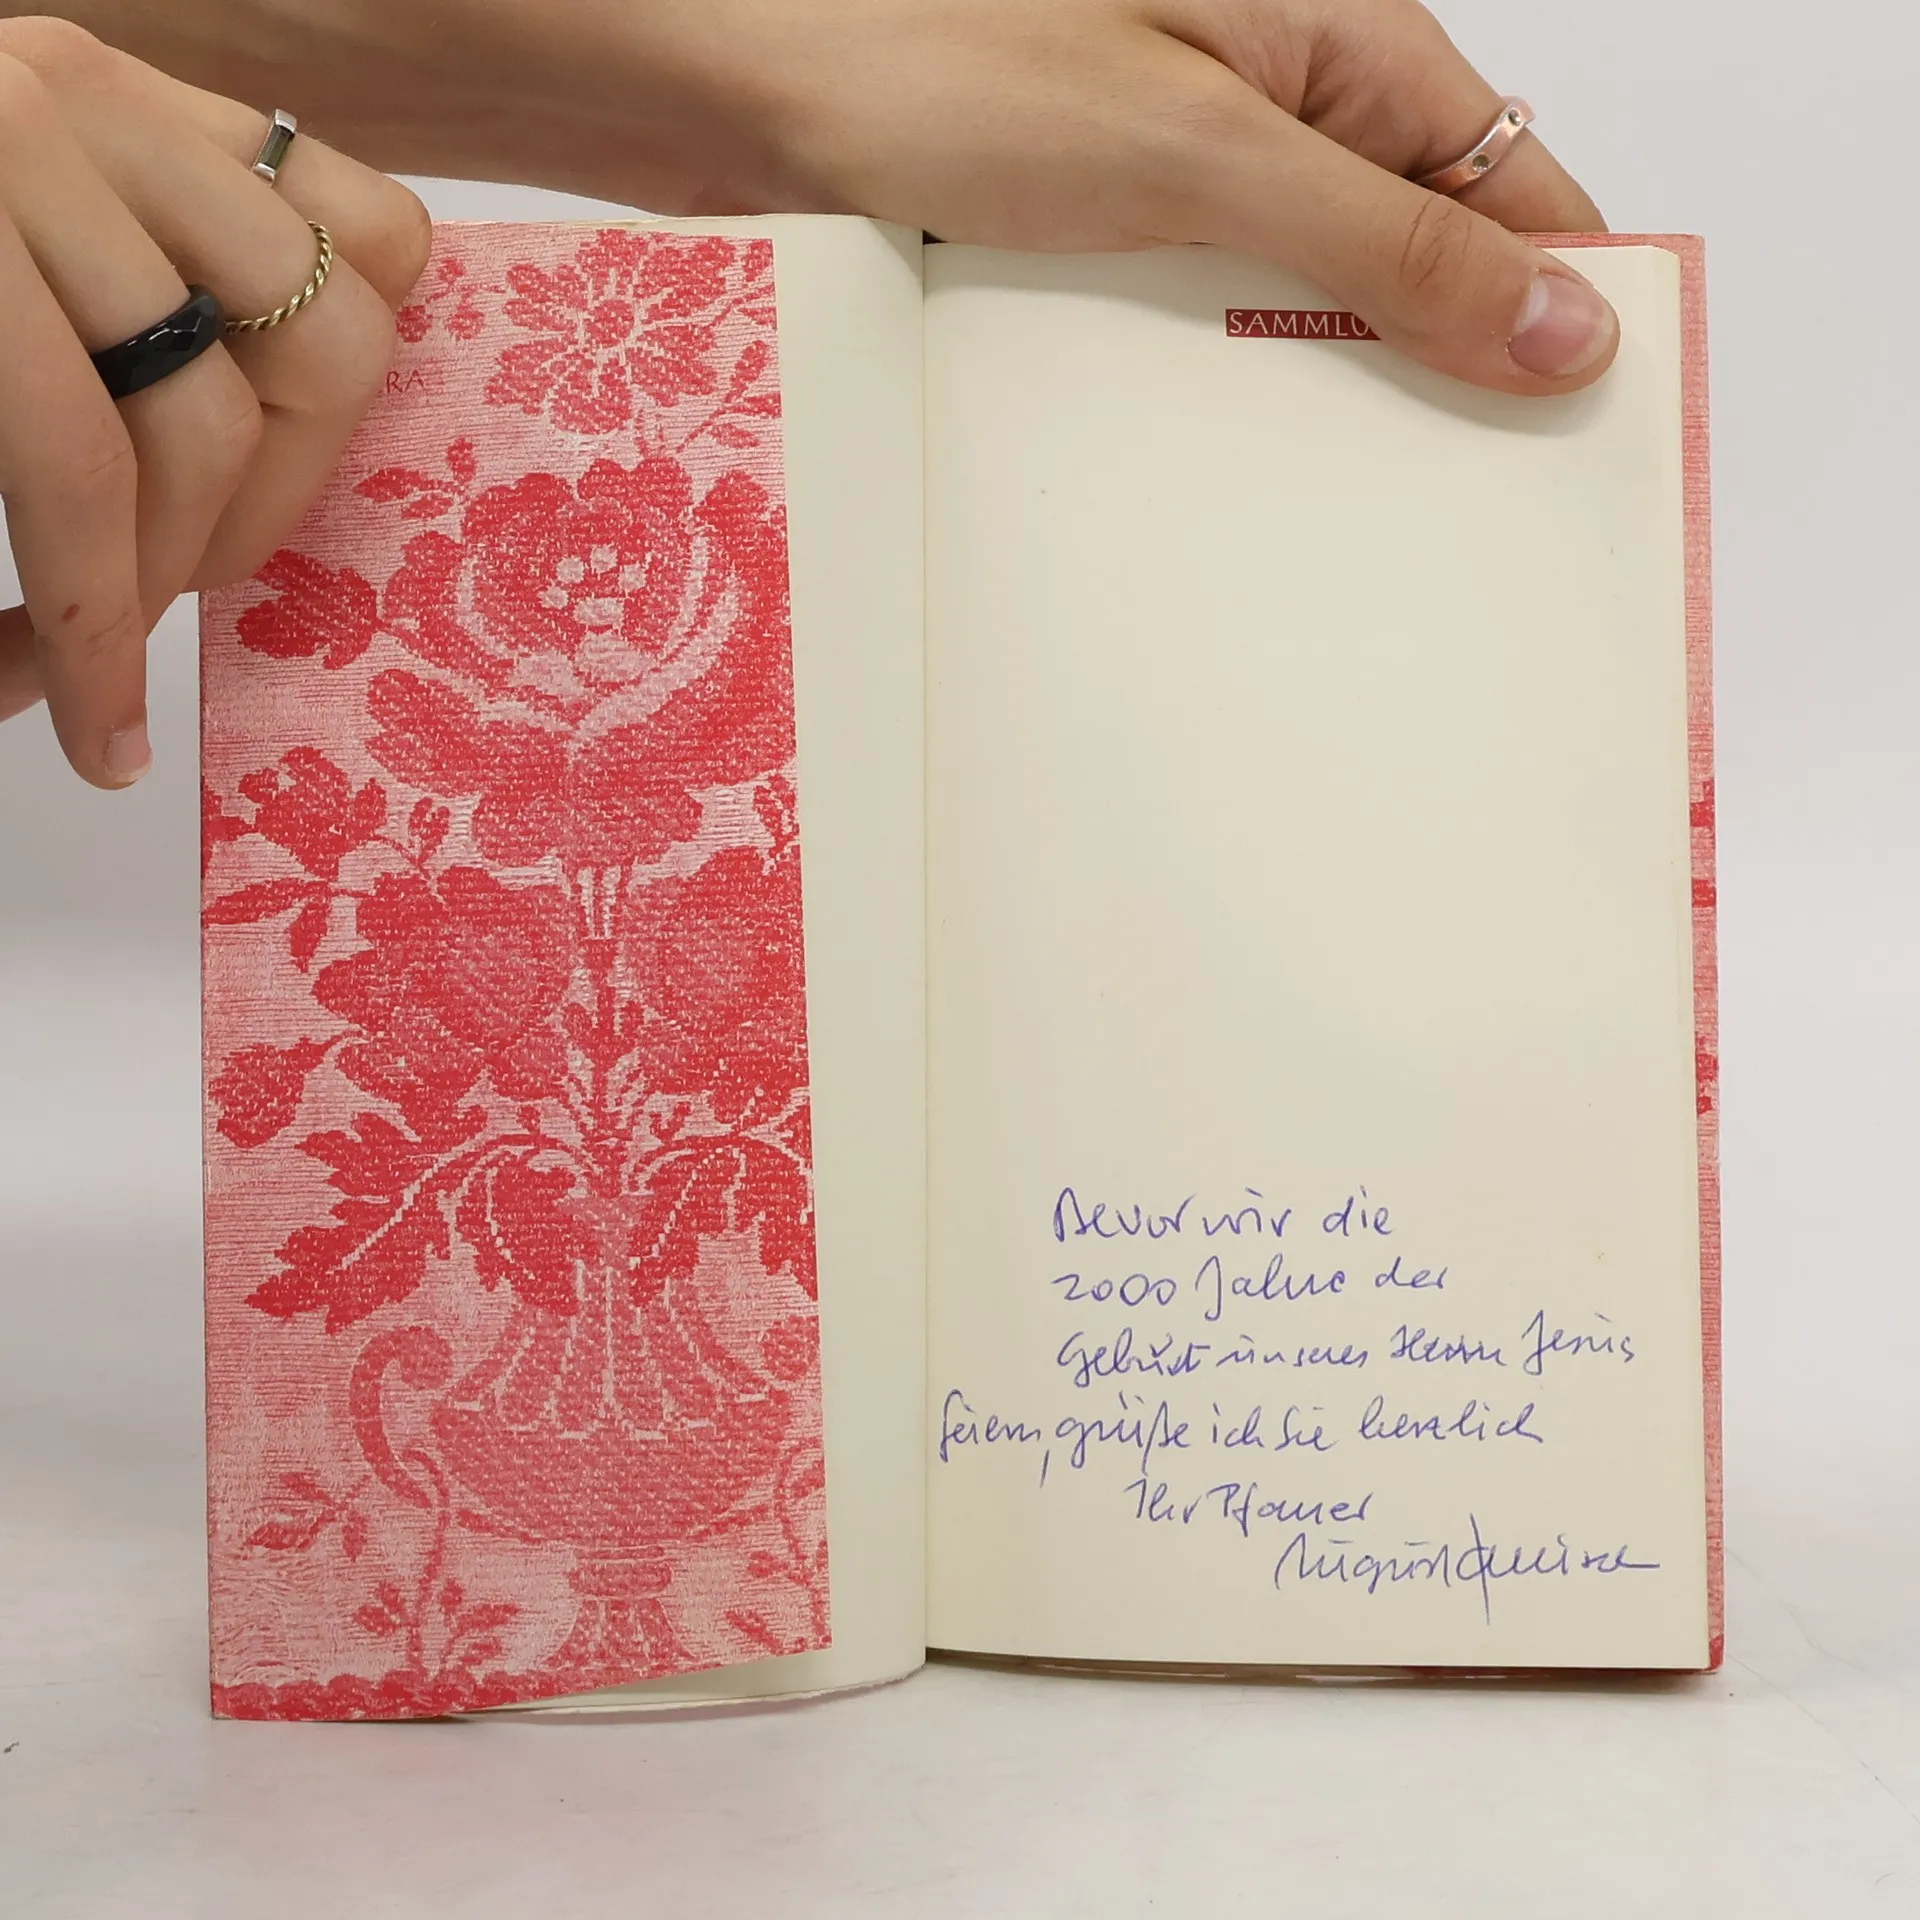 RA
SAMMLU
Bevor wir die
2000 Jahre der
Geburt unseres Herrn Jesus
feiern, grüße ich Sie herzlich
Ihr Pfarrer
August